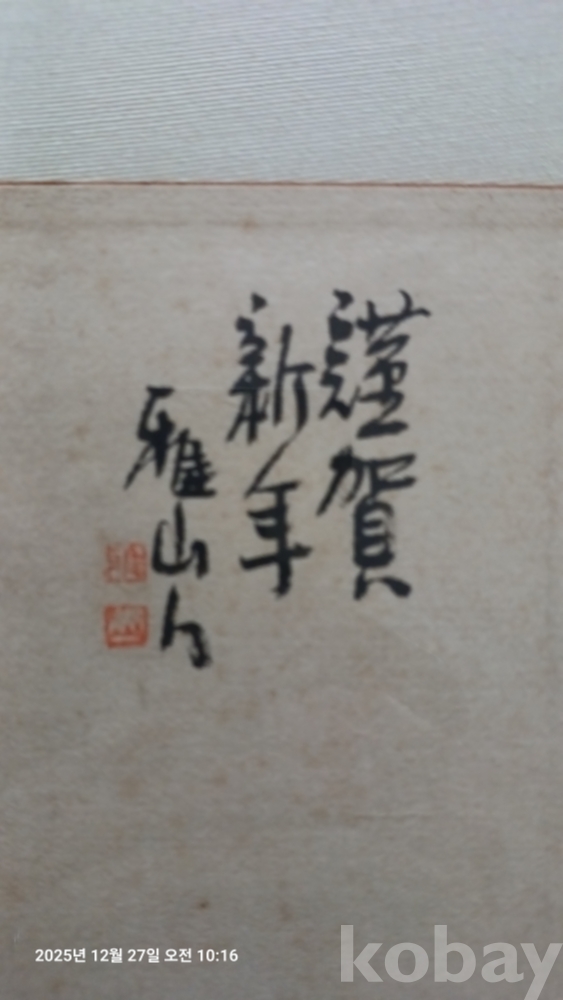 謹賀
新年
雅山人
2025년 12월 27일 오전 10:16
kobay